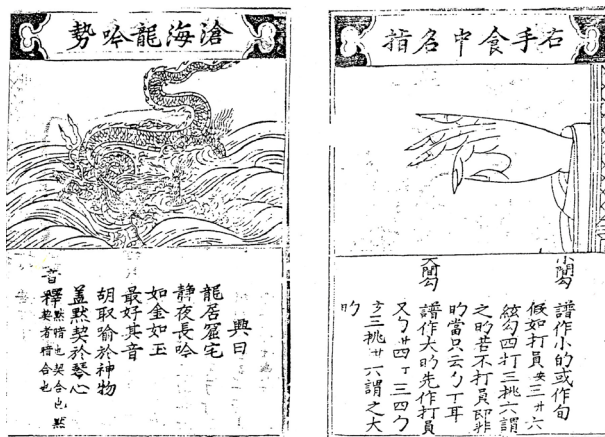 右手食中名指
小間勾
譜作小的或作句
假如打員三廿六
絃勾四打三挑六謂
之的若不打員即非
的當只云勹丁耳
大間勾
譜作大的先作打員
又勹廿四丁三四勹
三挑廿六謂之大
的
滄海龍吟勢
興曰
龍居窟宅
靜夜長吟
如金如玉
最好其音
胡取喻於神物
蓋默契於琴心
音釋
默暗也契合也默
契者暗合也